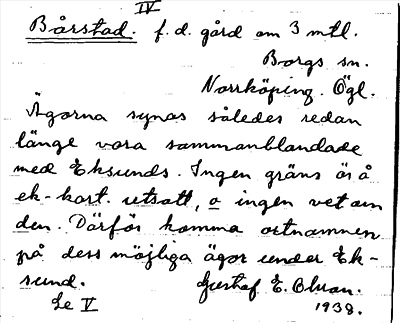 IV
Bårstad. f. d. gård om 3 mtl.
Borgs sn.
Norrköping. Ögl.
Ägorna synas således redan
länge vara sammanblandade
med Eksunds. Ingen gräns är å
ek-kart. utsatt, o ingen vet om
den. Därför komma ortnamnen
på dess möjliga ägor under Ek-
sund. Gustaf E. Blman.
Se V 1938.